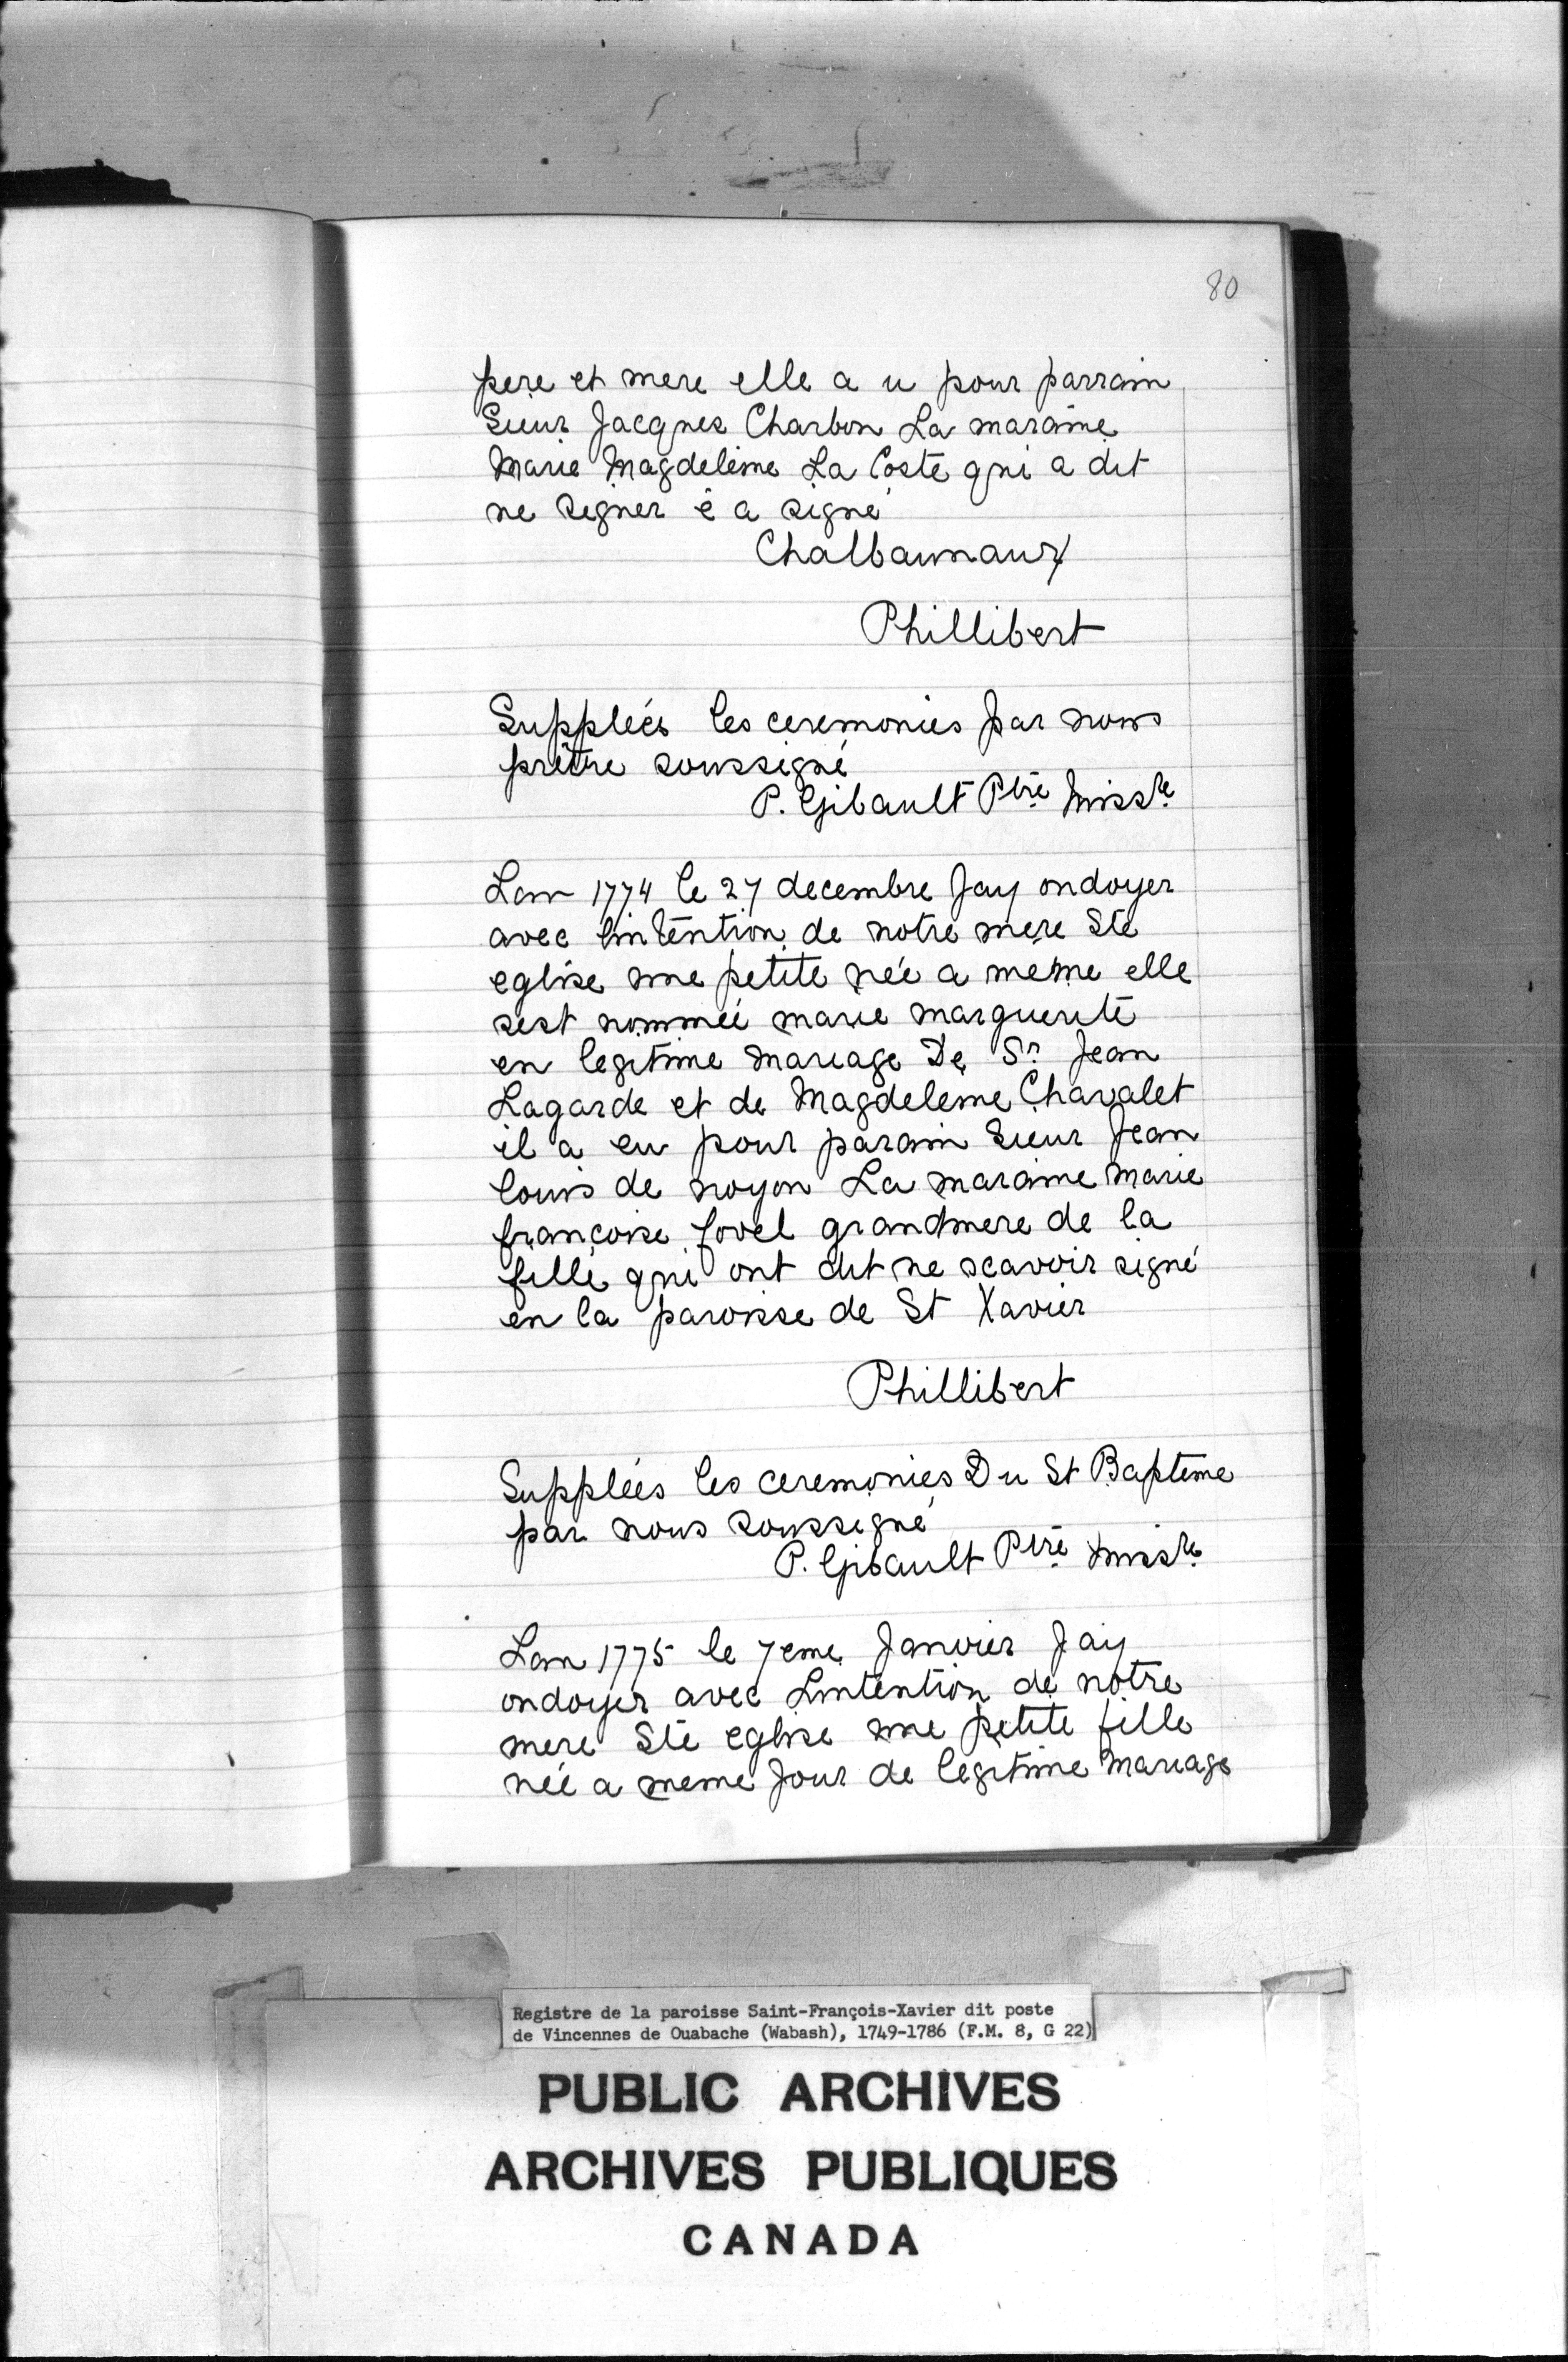 80
pere et mere elle a u pour parrain
Sieur Jacques Charbon La maraine
Marie Magdeleine La Coste qui a dit
ne signer é a signé
Chalbaunaux
Phillibert
Suppléés les ceremonies par nous
prêtre soussigné
P. Gibault Ptre Missre
Lan 1774 le 27 decembre Jay ondoyer
avec lintention de notre mere Ste
eglise une petite née a meme elle
sest nommée marie marguerite
en legitime mariage De Sr Jean
Lagarde et de Magdeleine Chavalet
il a eu pour parain Sieur Jean
louis de noyon La maraine Marie
françoise fovel grandmere de la
fille qui ont dit ne scavoir signé
en la paroisse de St Xavier
Phillibert
Suppléés les ceremonies Du St Bapteme
par nous soussigné
P. Gibault Ptre Missre
Lan 1775 le 7eme Janvier Jay
ondoyer avec Lintention de notre
mere Ste eglise une petite fille
née a meme Jour de legitime Mariage
Registre de la paroisse Saint-François-Xavier dit poste
de Vincennes de Ouabache (Wabash), 1749-1786 (F.M. 8, G 22)
PUBLIC ARCHIVES
ARCHIVES PUBLIQUES
CANADA